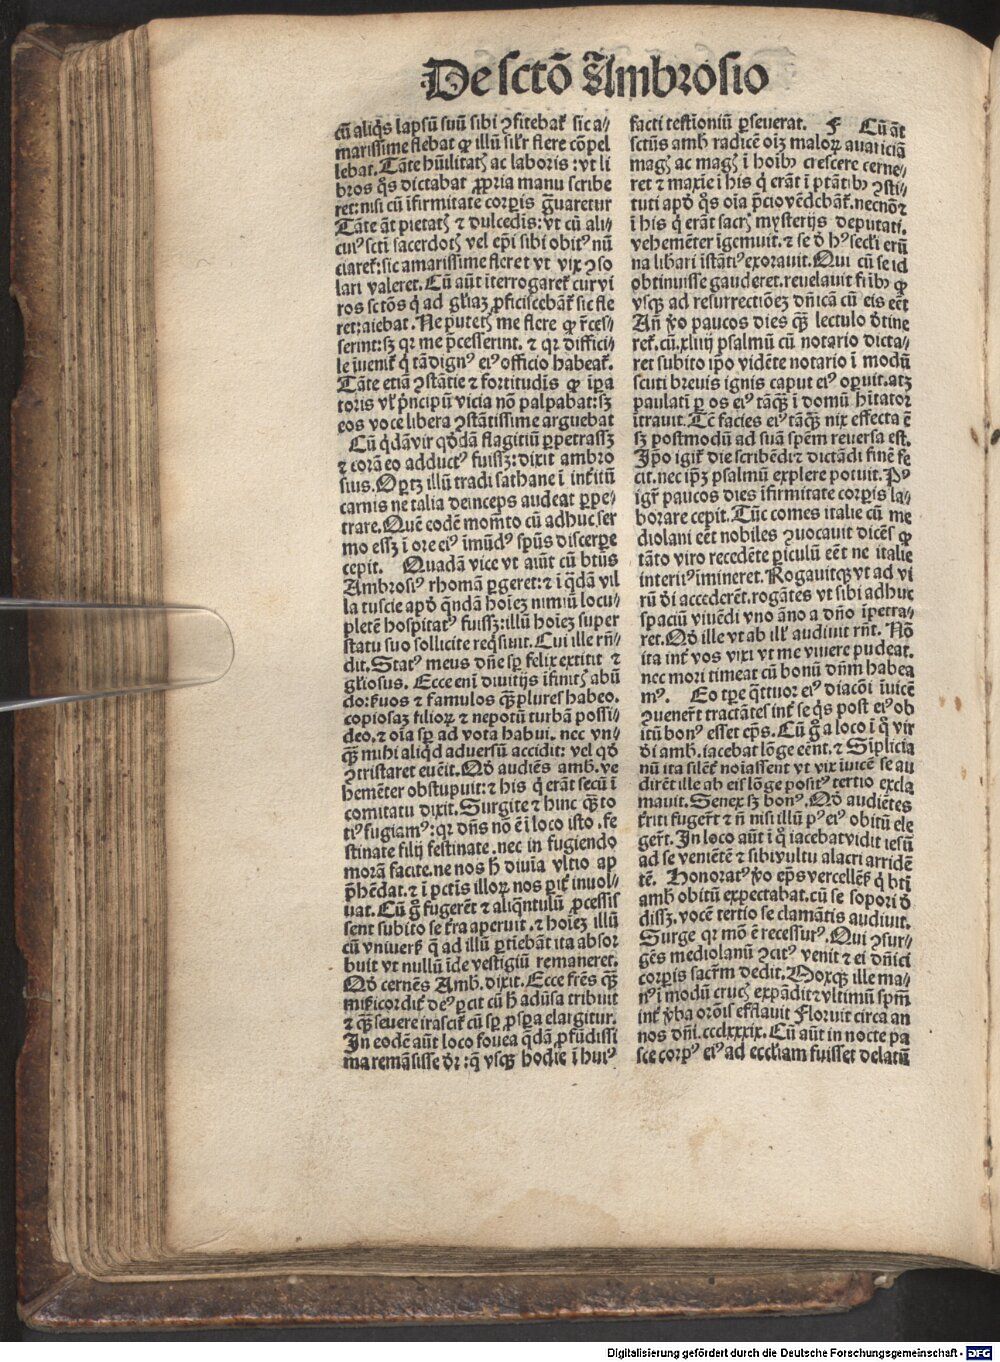 De sctō Ambrosio
cū aliqͥs lapsū suū sibi ꝯfitebat᷑ sic a⸗
marissime flebat ꝙ illū sil̓r flere cōpel
lebat. Tāte hūilitatꝭ ac laboris: vt li
bros qͦs dictabat ꝓpria manu scribe
ret: nisi cū īfirmitate corꝑis grauaretur
Tāte āt pietatꝭ ⁊ dulcedīs: vt cū ali⸗
cuiꝰ scti sacerdotꝭ vel epī sibi obitꝰ nū
ciaret᷑: sic amarissime fleret vt vix ꝯso
lari valeret. Cū aūt īterrogaret᷑ cur vi
ros sctōs q̇ ad gl̓iaꝫ ꝓficiscebāt᷑ sic fle
ret: aiebat. Ne putetꝭ me flere ꝙ r̄ces⸗
serint: sꝫ qr me p̄cesserint. ⁊ qr diffici⸗
le īuenit᷑ q̇ tā dignꝰ eiꝰ officio habeat᷑.
Tāte etiā ꝯstātie ⁊ fortitudīs ꝙ īꝑa
toris vl̓ pͥncipū vicia nō palpabat: sꝫ
eos voce libera ꝯstātissime arguebat
Cū qͥdā vir qͦddā flagitiū ꝑpetrassꝫ
⁊ corā eo adductꝰ fuissꝫ: dixit ambro
sius. Oꝑtꝫ illū tradi sathane ī int̓itū
carnis ne talia deinceps audeat ꝑpe⸗
trare. Quē eodē momēto cū adhuc ser
mo essꝫ ī ore eiꝰ īmūdꝰ spūs discerpere
cepit. Quadā vice vt aiūt cū btūs
Ambrosiꝰ rhomā ꝑgeret: ⁊ ī qͣdā vil
la tuscie apd̓ qͤndā hoīeꝫ nimiū locu⸗
pletē hospitatꝰ fuissꝫ: illū hoīeꝫ super
statu suo sollicite reqͥsiuit. Cui ille rn̄⸗
dit. Statꝰ meus dn̄e sꝑ felix extitit ⁊
gl̓iosus. Ecce enī diuitijs īfinitꝭ abū
do: ẜuos ⁊ famulos qͣꝫplures habeo.
copiosaꝫ filioꝝ ⁊ nepotū turbā possi⸗
deo. ⁊ oīa sꝑ ad vota habui. nec vn⸗
qͣꝫ mihi aliqͥd aduersū accidit: vel qd̓
ꝯtristaret euēit. Qd̓ audiēs amb. ve
hemēter obstupuit: ⁊ his q̇ erāt secū ī
comitatu dixit. Surgite ⁊ hinc qͣꝫto
tiꝰ fugiamꝰ: qr dn̄s nō ē ī loco isto. fe
stinate filij festinate. nec in fugiendo
morā facite. ne nos h̄ diuīa vltio ap
p̄hēdat. ⁊ ī pctīs illoꝝ nos ꝑit̓ inuol⸗
uat. Cū g̊ fugerēt ⁊ aliqͣntulū ꝓcessis
sent subito se t̓ra aperuit. ⁊ hoīeꝫ illū
cū vniuers̓ q̄ ad illū ꝑtiēbāt ita absor
buit vt nullū īde vestigiū remaneret.
Qd̓ cernēs Amb. dixit. Ecce frēs qͣꝫ
mīẜicordit̓ deꝰ ꝑcit cū h̄ adūsa tribuit
⁊ qͣꝫ seuere irascit᷑ cū sꝑ ꝓsꝑa elargitur.
In eodē aūt loco fouea qͣdā ꝓfūdissi
ma remāsisse dr̄: q̄ vsqꝫ hodie ī huiꝰ
facti testīoniū ꝑseuerat. F Cū āt
sctūs amb̓ radicē oīꝫ maloꝝ auariciā
magꝭ ac magꝭ ī hoībꝫ crescere cerne⸗
ret ⁊ maxīe ī his q̇ erāt ī ptātibꝫ ꝯsti⸗
tuti apd̓ qͦs oīa p̄cio vēdebāt᷑. necnō ⁊
ī his q̇ erāt sacrꝭ mysterijs deputati.
vehemēter īgemuit. ⁊ se d̓ hꝰ secl̓i erū
na lib̓ari īstātiꝰ exorauit. Qui cū se id
obtinuisse gauderet. reuelauit fr̄ibꝫ ꝙ
vsqꝫ ad resurrectiōeꝫ dn̄icā cū eis eēt
An̄ ꝟo paucos dies qͣꝫ lectulo d̓tine
ret᷑. cū .xliij psalmū cū notario dicta⸗
ret subito ip̄o vidēte notario ī modū
scuti breuis ignis caput eiꝰ oꝑuit. atꝫ
paulatī ꝑ os eiꝰ tāqͣꝫ ī domū hītator
ītrauit. Tc̄ facies eiꝰ tāqͣꝫ nix effecta ē
sꝫ postmodū ad suā spēm reuersa est.
Ip̄o igit᷑ die scribēdi ⁊ dictādi finē fe
cit. nec ip̄ꝫ psalmū explere potuit. Pꝰ
igr̄ paucos dies īfirmitate corꝑis la⸗
borare cepit. Tūc comes italie cū me
diolani eēt nobiles ꝯuocauit dicēs ꝙ
tāto viro recedēte ꝑiculū eēt ne italie
interitꝰ īmineret. Rogauitqꝫ vt ad vi
rū d̓i accederēt. rogātes vt sibi adhuc
spaciū viuēdi vno āno a dn̄o īpetra⸗
ret. Qd̓ ille vt ab ill̓ audiuit rn̄t. Nō
ita int̓ vos vixi vt me viuere pudeat.
nec mori timeat cū bonū dn̄m habea
mꝰ. Eo tꝑe qͣttuor eiꝰ diacōi īuicē
ꝯuener̄t tractātes int̓ se qͥs post eiꝰ ob
itū bonꝰ esset ep̄s. Cū g̊ a loco ī q̊ vir
d̓i amb. iacebat lōge eēnt. ⁊ Simplicia
nū ita silēt̓ noīassent vt vix īuicē se au
dirēt ille ab eis lōge positꝰ tertio excla
mauit. Senex sꝫ bonꝰ. Qd̓ audiētes
t̓riti fuger̄t ⁊ n̄ nisi illū pꝰ eiꝰ obitū ele
ger̄t. In loco aūt ī q̊ iacebat vidit iesū
ad se veniētē ⁊ sibi vultu alacri arridē
tē. Honoratꝰ ꝟo ep̄s vercellēs̓ q̇ btī
amb̓ obitū expectabat. cū se sopori d̓
dissꝫ. vocē tertio se clamātis audiuit.
Surge qr mō ē recessurꝰ. Qui ꝯsur⸗
gēs mediolanū ꝯcitꝰ venit ⁊ ei dn̄ici
corꝑis sacr̄m dedit. Moxqꝫ ille ma⸗
nꝰ ī modū crucꝭ expādit ⁊ vltimū spm̄
int̓ ꝟba orōis efflauit Floruit circa an
nos dn̄i. ccclxxxix. Cū aūt in nocte pa
sce corpꝰ eiꝰ ad eccl̓iam fuisset delatū
Digitalisierung gefördert durch die Deutsche Forschungsgemeinschaft - DFG